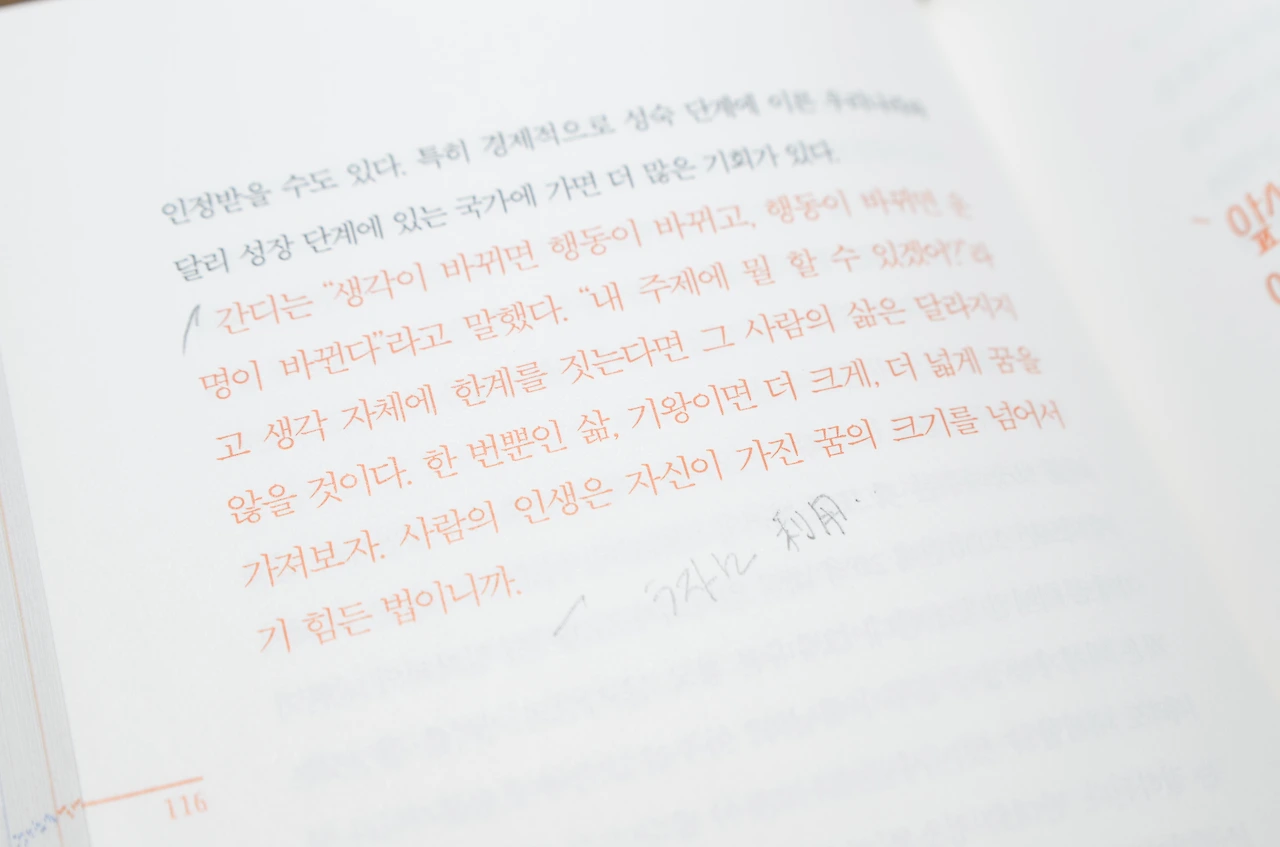 인정받을 수도 있다. 특히 경제적으로 성숙 단계에 이른 우리나라와
달리 성장 단계에 있는 국가에 가면 더 많은 기회가 있다.
간디는 “생각이 바뀌면 행동이 바뀌고, 행동이 바뀌면 운
명이 바뀐다”라고 말했다. “내 주제에 뭘 할 수 있겠어?”라
고 생각 자체에 한계를 짓는다면 그 사람의 삶은 달라지지
않을 것이다. 한 번뿐인 삶, 기왕이면 더 크게, 더 넓게 꿈을
가져보자. 사람의 인생은 자신이 가진 꿈의 크기를 넘어서
기 힘든 법이니까.
利用
116